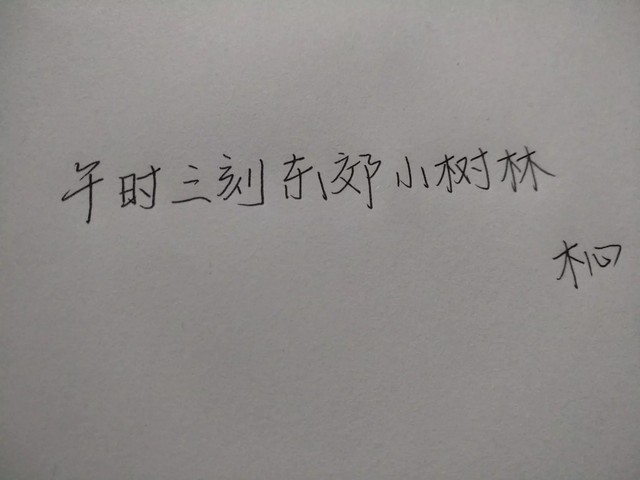 午时三刻东郊小树林
杺